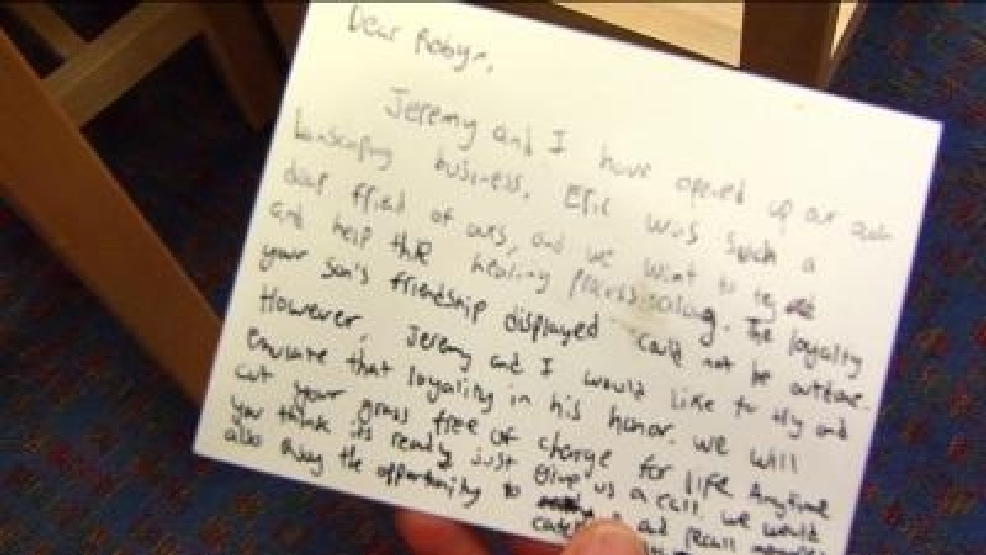 Dear Robyn,
Jeremy and I have opened up our own
Lanscaping business. Eric was such a
dear ffied of ours, and we want to try
and help the healing process along. The loyalty
your son's friendship displayed could not be outdone.
However, Jeremy and I would like to try and
emulate that loyality in his honor. we will
cut your grass free of charge for life. Anytime
you think its ready just give us a call. we would
also enjoy the opportunity to and recall